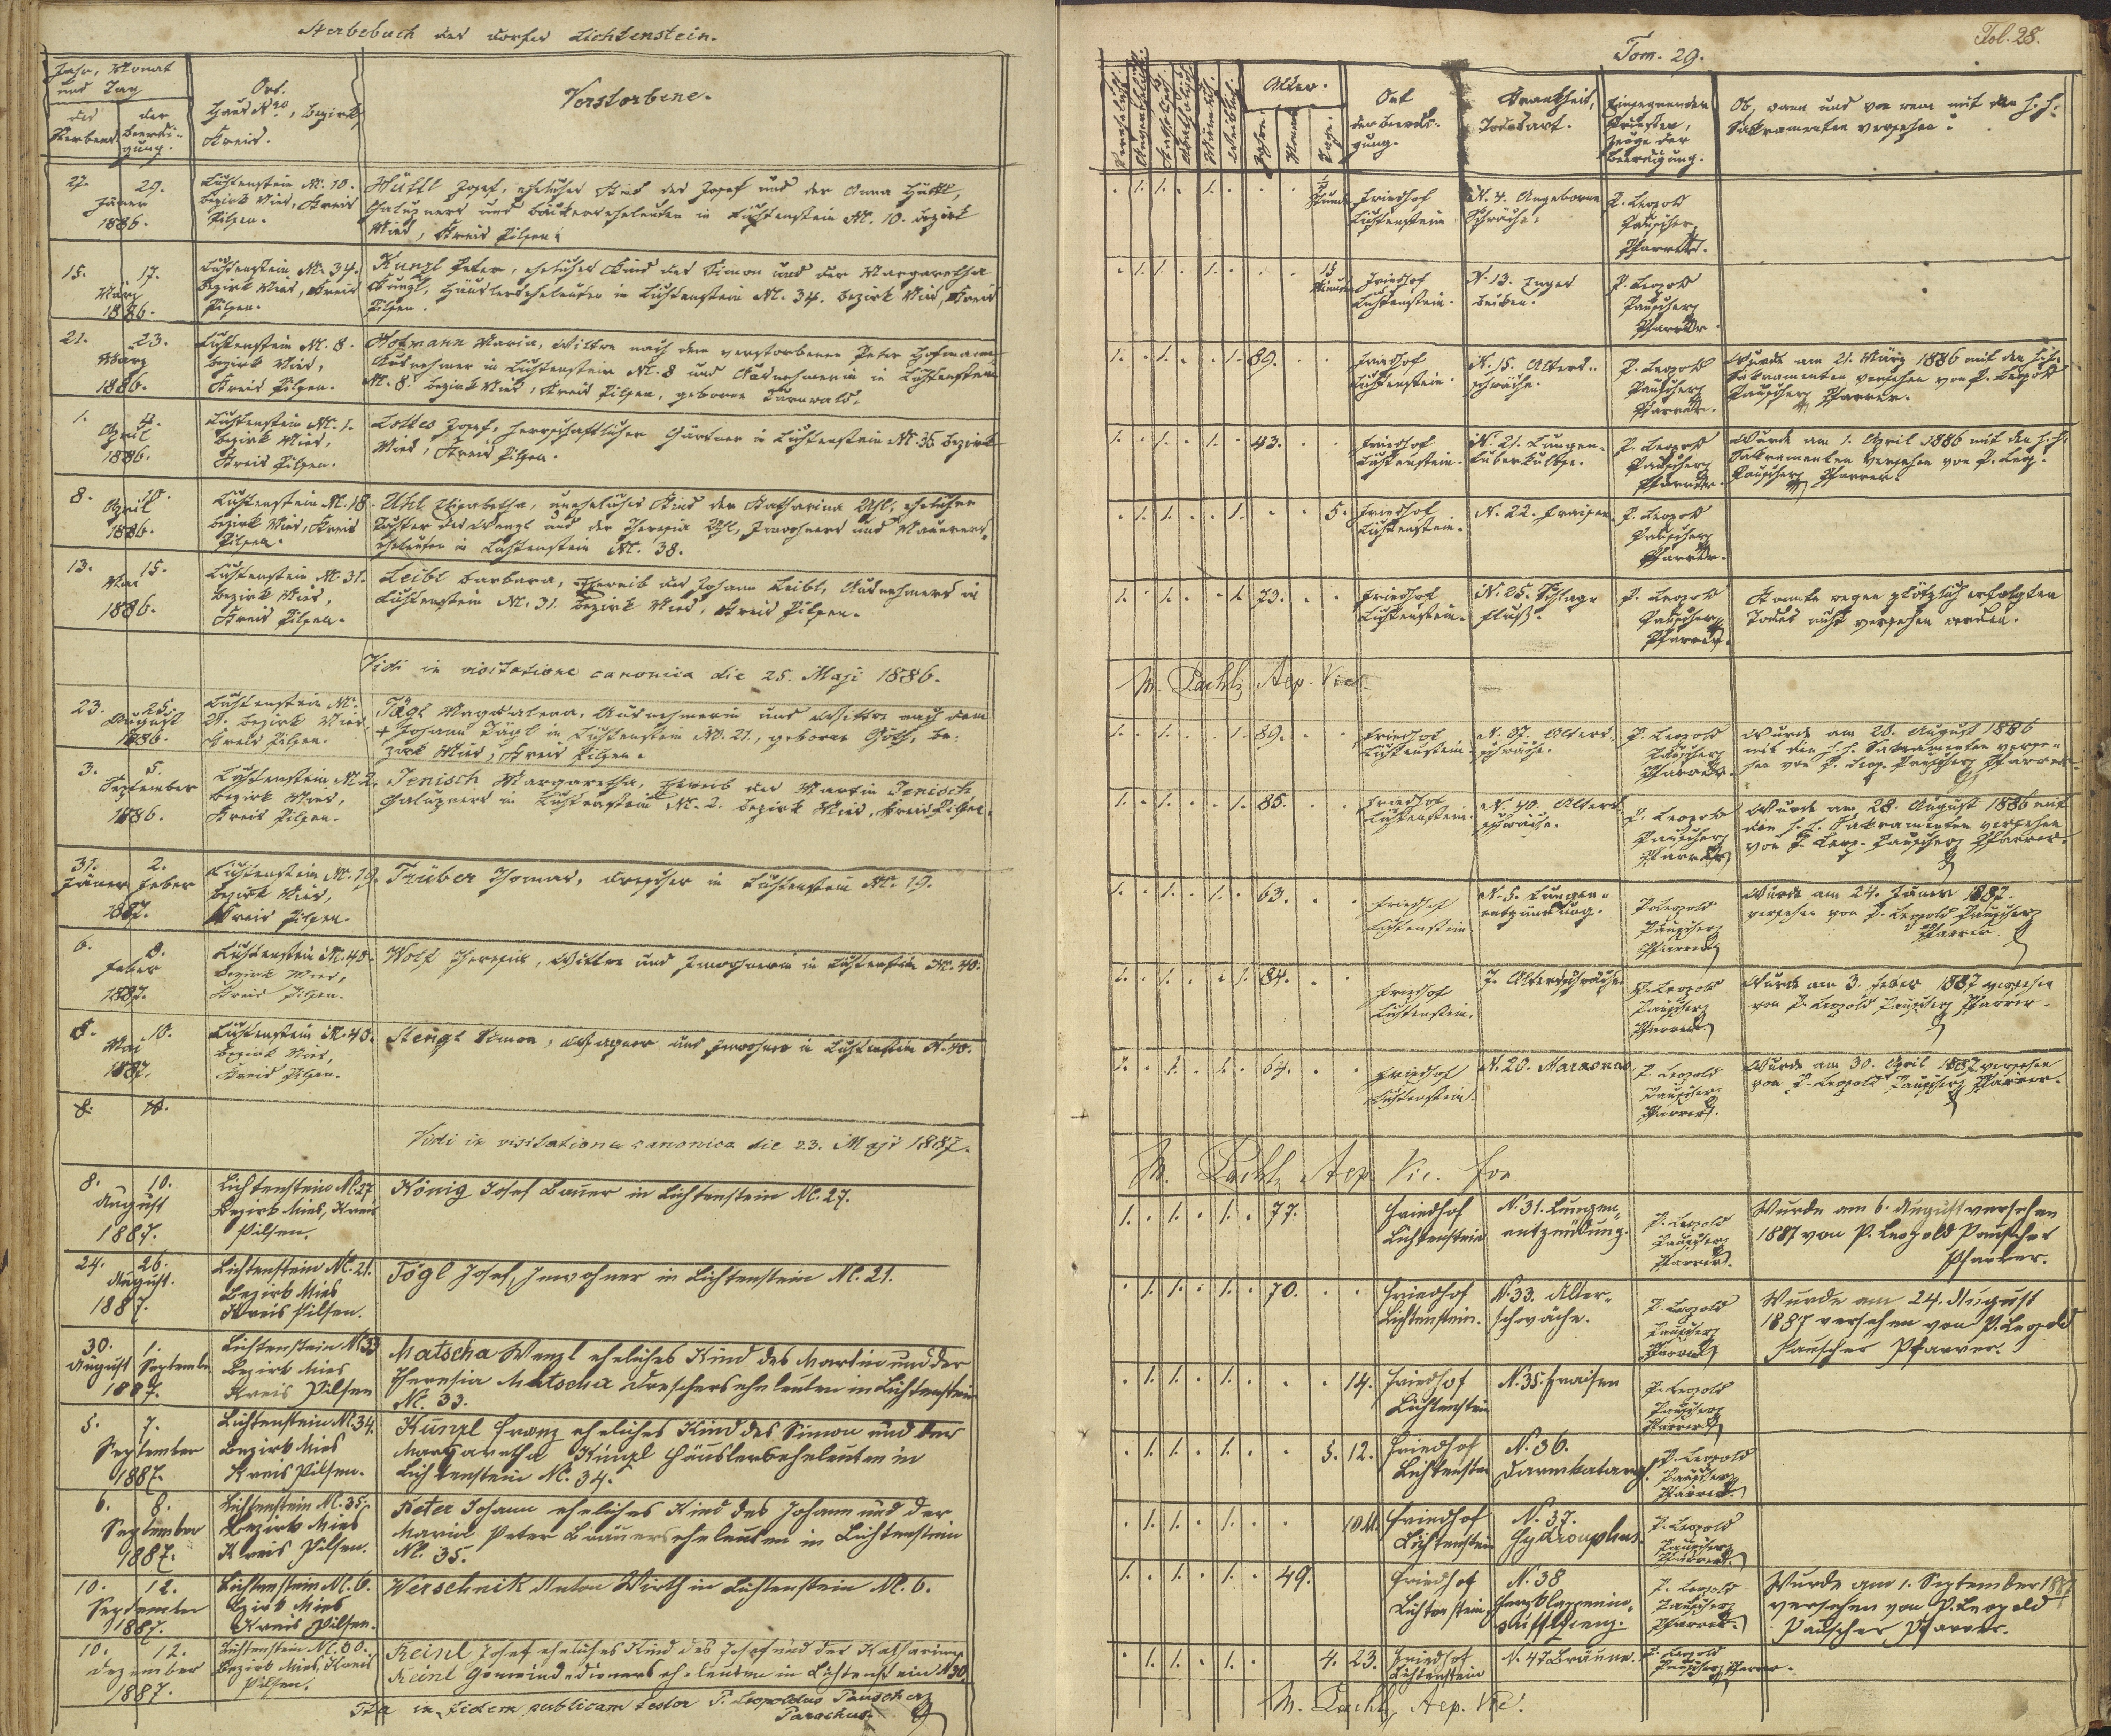 Sterbebuch des Dorfes Lichtenstein.
Jahr, Monat
und Tag
des
Sterbens
der
Beerdi-
gung.
Ort.
Haus Nro, Bezirk,
Kreis.
Verstorbene.
27. 29.
Jäner
1886.
Lichtenstein N. 10.
Bezirk Mies, Kreis
Pilsen.
Hüttl Josef, eheliches Kind des Josef und der Anna Hüttl,
Chalupners und Bäckerseheleuten in Lichtenstein N. 10. Bezirk
Mies, Kreis Pilsen.
15. 17.
März
1886.
Lichtenstein N. 34.
Bezirk Mies, Kreis
Pilsen.
Künzl Peter, eheliches Kind des Simon und der Margaretha
Künzl, Häuslerseheleuten in Lichtenstein N. 34. Bezirk Mies, Kreis
Pilsen.
21. 23.
März
1886.
Lichtenstein N. 8.
Bezirk Mies,
Kreis Pilsen.
Hofmann Maria, Witwe nach dem verstorbenen Peter Hofmann
Ausnehmer in Lichtenstein N. 8 und Ausnehmerin in Lichtenstein
N. 8. Bezirk Mies, Kreis Pilsen, geborne
1. 4.
April
1886.
Lichtenstein N. 1.
Bezirk Mies,
Kreis Pilsen.
Lottes Josef, herrschaftlicher Gärtner in Lichtenstein N. 35 Bezirk
Mies, Kreis Pilsen.
8. 10.
April
1886.
Lichtenstein N. 18.
Bezirk Mies, Kreis
Pilsen.
Uhl Elisabetha, uneheliches Kind der Katharina Uhl, ehelichen
Tochter des Wenzl und der Theresia Uhl, Inwohners und Maurers-
eheleuten in Lichtenstein N. 38.
13. 15.
Mai
1886.
Lichtenstein N. 31.
Bezirk Mies,
Kreis Pilsen.
Leibl Barbara, Eheweib des Johann Leibl, Ausnehmers in
Lichtenstein N. 31. Bezirk Mies, Kreis Pilsen.
Vidi in visitatione canonica die 25. Maji 1886.
23. 25.
August
1886.
Lichtenstein N.
21. Bezirk Mies,
Kreis Pilsen.
Tögl Magdalena, Ausnehmerin und Wittwe nach dem
+ Johann Tögl in Lichtenstein N. 21., geborne Götz, Be-
zirk Mies, Kreis Pilsen.
3. 5.
September
1886.
Lichtenstein N. 2.
Bezirk Mies,
Kreis Pilsen.
Jenisch Margaretha, Eheweib des Martin Jenisch
Chalupners in Lichtenstein N. 2. Bezirk Mies, Kreis Pilsen.
31. 2.
Jäner Feber
1887.
Lichtenstein N. 19.
Bezirk Mies,
Kreis Pilsen.
Thomas, Drescher in Lichtenstein N. 19.
6. 8.
Feber
1887.
Lichtenstein N. 40.
Bezirk Mies,
Kreis Pilsen.
Wolf Theresia, Wittwe und Inwohnerin in Lichtenstein N. 40.
8. 10.
Mai
1887.
Lichtenstein N. 40.
Bezirk Mies,
Kreis Pilsen.
Stengl Simon, Wagner und Inwohner in Lichtenstein N. 40.
8. 10.
Vidi in visitatione canonica die 23. Maji 1887.
8. 10.
August
1887.
Lichtenstein N. 27
Bezirk Mies, Kreis
Pilsen.
König Josef Bauer in Lichtenstein N. 27.
24. 26.
August.
1887.
Lichtenstein N. 21.
Bezirk Mies
Kreis Pilsen.
Tögl Josef, Inwohner in Lichtenstein N. 21.
30. 1.
August September
1887.
Lichtenstein N. 33
Bezirk Mies
Kreis Pilsen
Matscha Wenzl eheliches Kind des Martin und der
Theresia Matscha Drescherseheleuten in Lichtenstein
N. 33.
5. 7.
September
1887.
Lichtenstein N. 34.
Bezirk Mies
Kreis Pilsen.
Künzl Franz eheliches Kind des Simon und der
Margaretha Künzl Häuslerseheleuten in
Lichtenstein N. 34.
6. 8.
September
1887.
Lichtenstein N. 35.
Bezirk Mies
Kreis Pilsen.
Peter Johann eheliches Kind des Johann und der
Maria Peter Bräuerseheleuten in Lichtenstein
N. 35.
10. 12.
September
1887.
Lichtenstein N. 6.
Bezirk Mies
Kreis Pilsen.
Werschnik Anton Wirth in Lichtenstein N. 6.
10. 12.
Dezember
1887.
Lichtenstein N. 30.
Bezirk Mies, Kreis
Pilsen.
Reinl Josef eheliches Kind des Josef und der Katharina
Reinl Gemeindedienerseheleuten in Lichtenstein N. 30.
Ita in fidem publicam testor P. Leopoldus Pauscher
Parochus.
Tom. 29.
Fol. 28.
Alter.
Jahre.
Monat
Tage.
Ort
der Beerdi-
gung.
Krankheit,
Todesart.
Einsegnender
Priester,
Zeuge der
Beerdigung.
Ob, wann und von wem mit den h. h.
Sakramenten versehen?
Stunde
Friedhof
Lichtenstein
N. 4. Angeborne
Schwäche.
P. Leopold
Pauscher
Pfarrer.
15
Minuten
Friedhof
Lichtenstein.
N. 13. Enges
Becken.
P. Leopold
Pauscher
Pfarrer.
89.
Friedhof
Lichtenstein.
N. 15. Alters-
schwäche.
P. Leopold
Pauscher
Pfarrer.
Wurde am 21. März 1886 mit den h. h.
Sakramenten versehen von P. Leopold
Pauscher Pfarrer.
43.
Friedhof
Lichtenstein.
N. 21. Lungen-
tuberkulose.
P. Leopold
Pauscher
Pfarrer.
Wurde am 1. April 1886 mit den h. h.
Sakramenten versehen von P. Leop.
Pauscher Pfarrer.
5.
Friedhof
Lichtenstein.
N. 22. Fraisen.
P. Leopold
Pauscher
Pfarrer.
73.
Friedhof
Lichtenstein.
N. 25. Schlag-
fluß.
P. Leopold
Pauscher
Pfarrer.
Konnte wegen plötzlich erfolgten
Todes nicht versehen werden.
M. Pachl, Aep. Vic.
89.
Friedhof
Lichtenstein.
N. 37. Alters-
schwäche.
P. Leopold
Pauscher
Pfarrer.
Wurde am 20. August 1886
mit den h. h. Sakramenten verse-
hen von P. Leop. Pauscher Pfarrer.
85.
Friedhof
Lichtenstein.
N. 40. Alters-
schwäche.
P. Leopold
Pauscher
Pfarrer
Wurde am 28. August 1886 mit
den h. h. Sakramenten versehen
von P. Leop. Pauscher Pfarrer.
63.
Friedhof
Lichtenstein
N. 5. Lungen-
entzündung.
P. Leopold
Pauscher
Pfarrer
Wurde am 24. Jäner 1887.
versehen von P. Leopold Pauscher
Pfarrer.
84.
Friedhof
Lichtenstein.
7. Altersschwäche
P. Leopold
Pauscher
Pfarrer
Wurde am 3. Feber 1887 versehen
von P. Leopold Pauscher Pfarrer.
64.
Friedhof
Lichtenstein.
N. 20. Marasmus
P. Leopold
Pauscher
Pfarrer.
Wurde am 30. April 1887 versehen
von P. Leopold Pauscher Pfarrer.
M. Pachl, Aep. Vic. For
77.
Friedhof
Lichtenstein
N. 31. Lungen-
entzündung.
P. Leopold
Pauscher
Pfarrer.
Wurde am 6. August versehen
1887 von P. Leopold Pauscher
Pfarrer.
70.
Friedhof
Lichtenstein.
N. 33. Alter-
schwäche.
P. Leopold
Pauscher
Pfarrer
Wurde am 24. August
1887 versehen von P. Leopold
Pauscher Pfarrer.
14.
Friedhof
Lichtenstein
N. 35. Fraisen
P. Leopold
Pauscher
Pfarrer
5. 12.
Friedhof
Lichtenstein
N. 36.
Darmkatarrh.
P. Leopold
Pauscher
Pfarrer.
Friedhof
Lichtenstein
N. 37.
P. Leopold
Pauscher
Pfarrer.
49.
Friedhof
Lichtenstein
N. 38
Herzklappenin-
P. Leopold
Pauscher
Pfarrer.
Wurde am 1. September 1887
versehen von P. Leopold
Pauscher Pfarrer.
4. 23.
Friedhof
Lichtenstein
N. 47 Bräune.
P. Leopold
Pauscher Pfarrer.
M. Pachl, Aep. Vic.